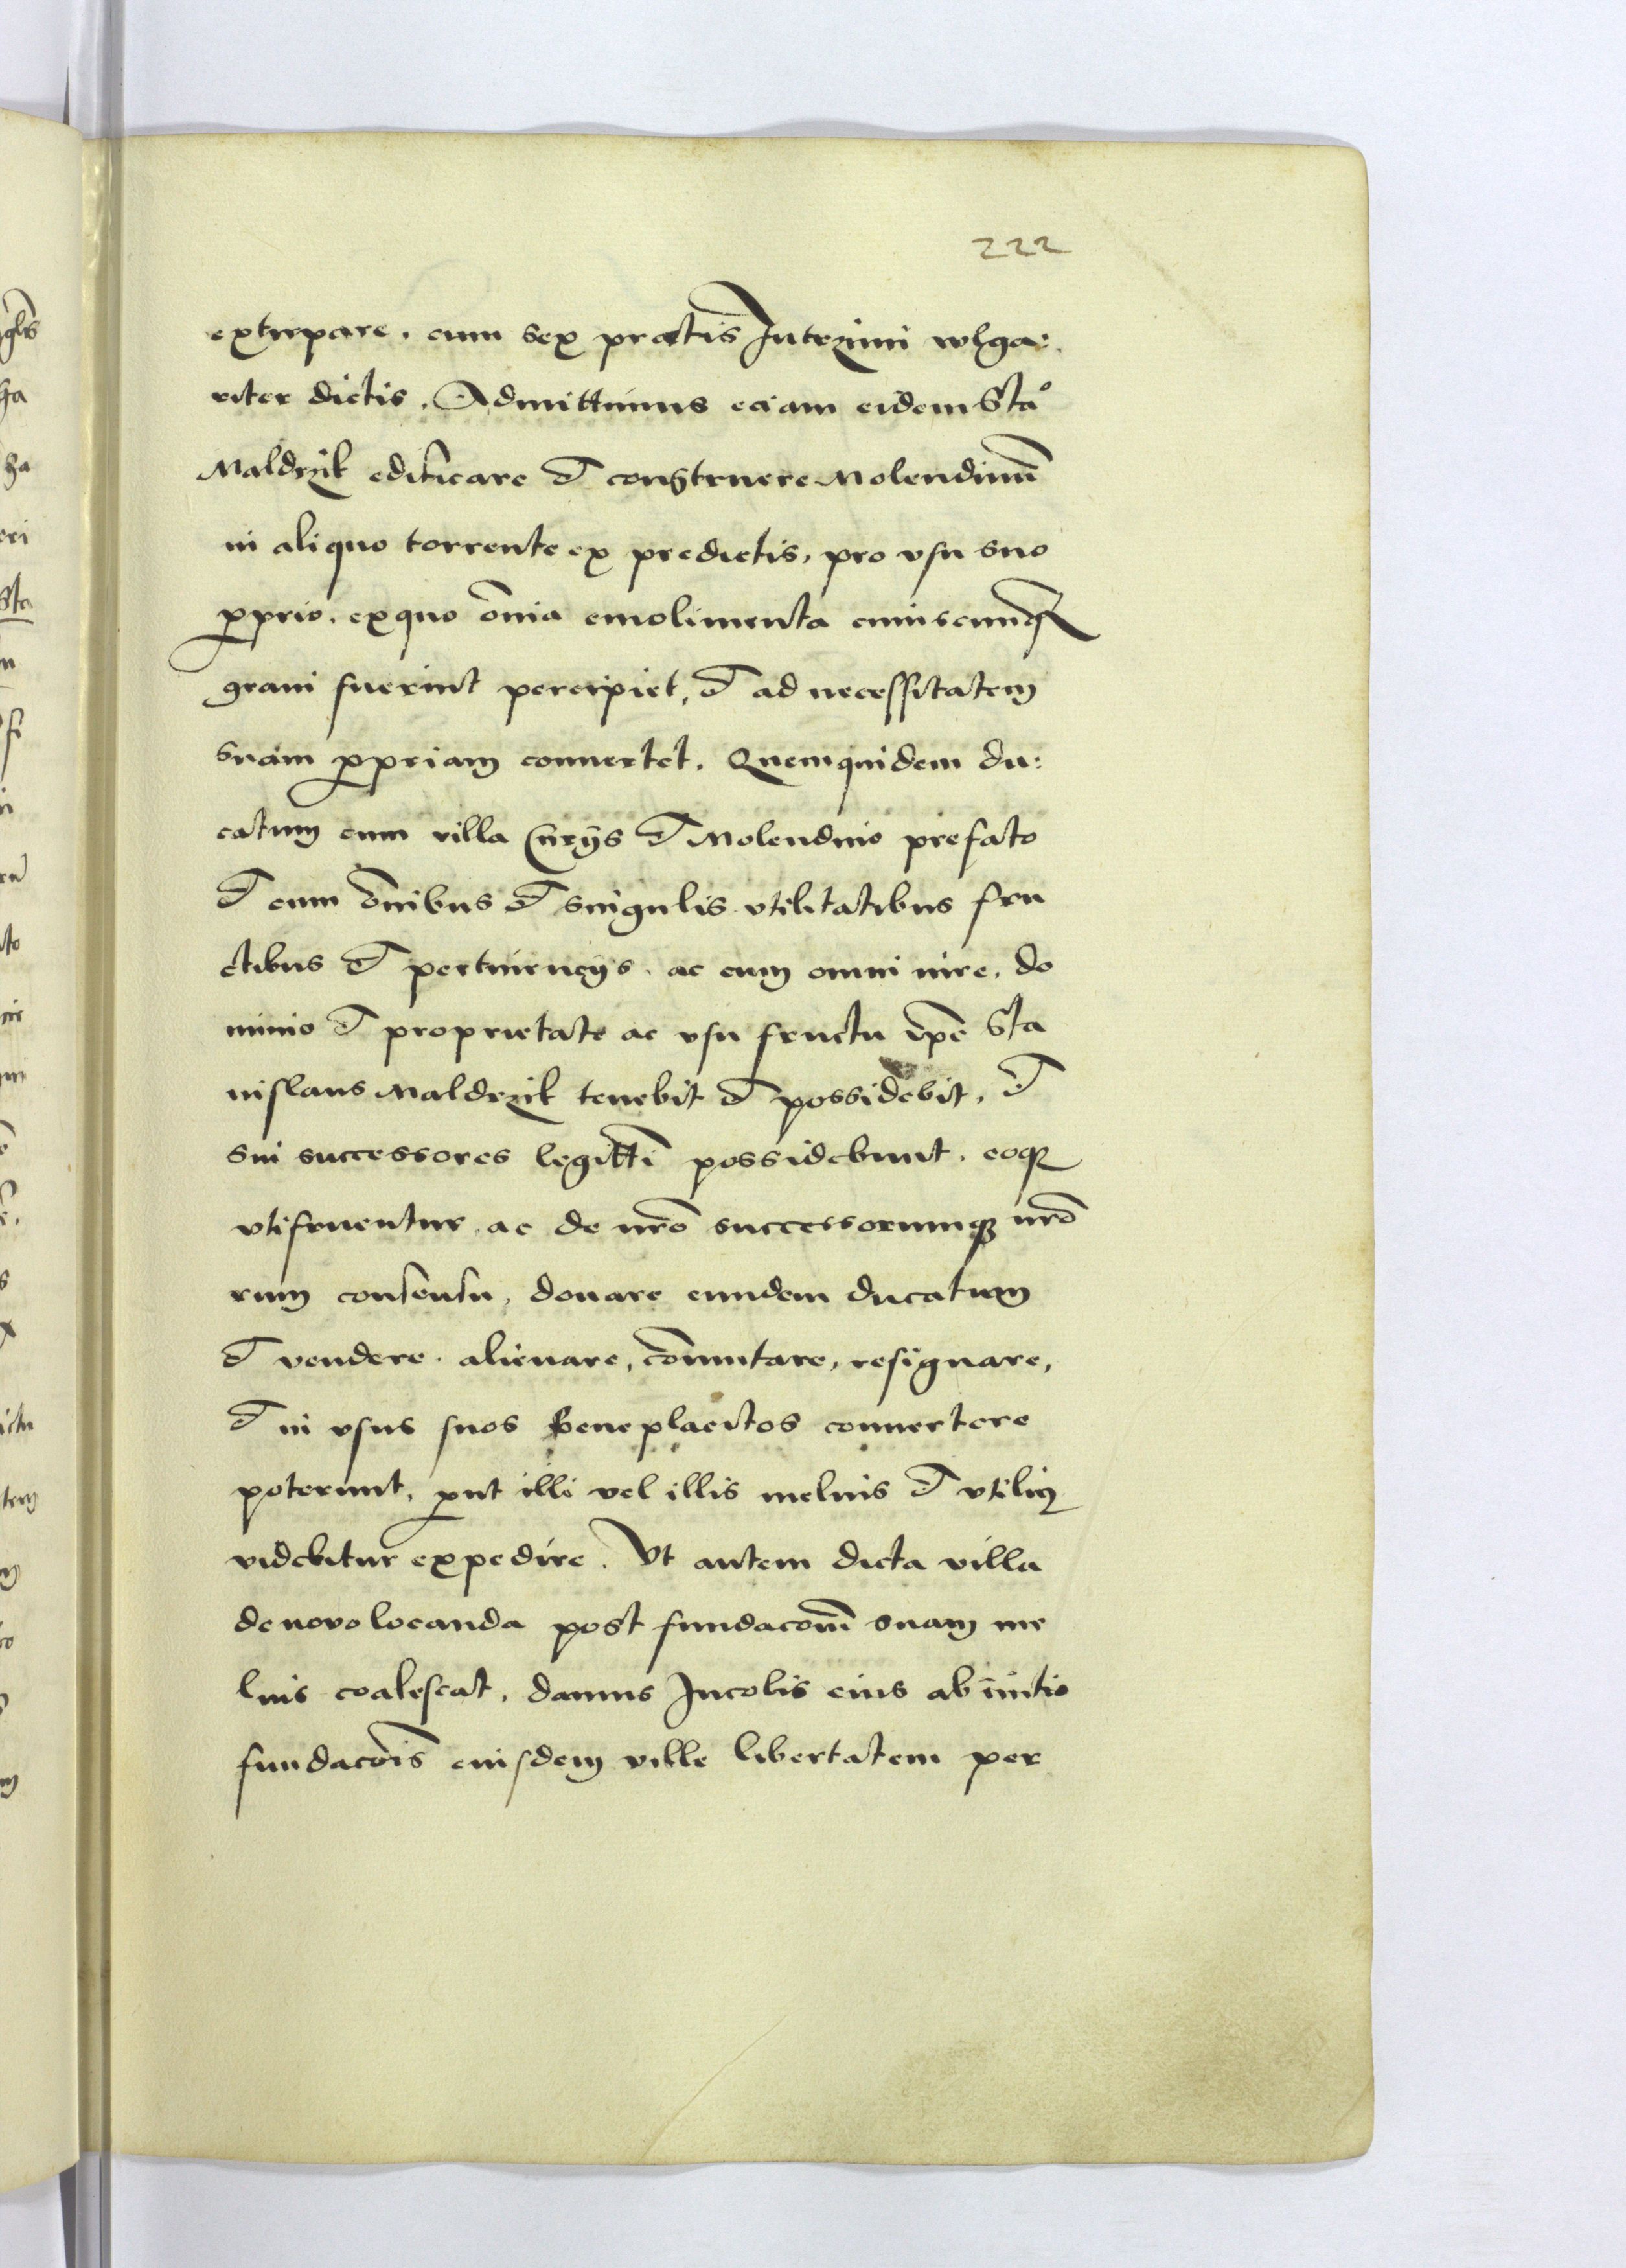 222
extirpare. cum sex pratis Interzini wlga:
riter dictis. Admittimus eciam eidem Sta°
Maldrzik edificare et construere Molendinū
in aliquo torrente ex predictis, pro vsu suo
ꝓprio. ex quo om̄ia emolimenta cuiuscunqꝫ
grani fuerint percipiet, et ad necessitatem
suam ꝓpriam conuertet. Quemquidem du:
catum cum villa et Molendino prefato
et cum om̄ibus et singulis vtilitatibus fru
ctibus et pertinencijs. ac cum omni iure, do
minio et proprietate ac vsu fructu ip̄e Sta
nislaus Maldrzik tenebit et possidebit, et
sui successores legitti̅ possidebunt. eoqꝫ
vtifruentur ac de nr̄o successorumqꝫ nr̄o
rum consensu, donare eundem ducatum
et vendere. alienare, com̄utare, resignare,
et in vsus suos beneplacitos conuertere
poterunt, ꝓut illi vel illis melius et vtiliꝰ
videbitur expedire. Vt autem dicta villa
de novo locanda post fundacōm̄ suam me
lius coalescat, damus Incolis eius ab initio
fundacōis eiusdem ville libertatem per